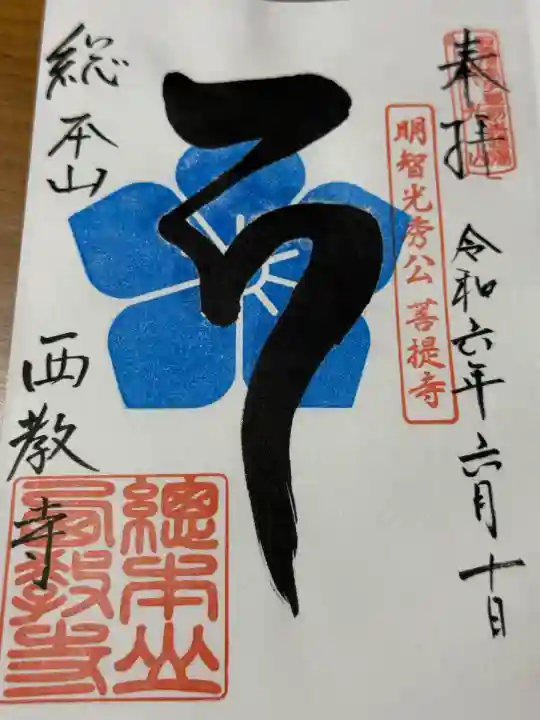 奉拝
令和六年六月十日
明智光秀公 菩提寺
総本山
西教寺
總本山
西教寺